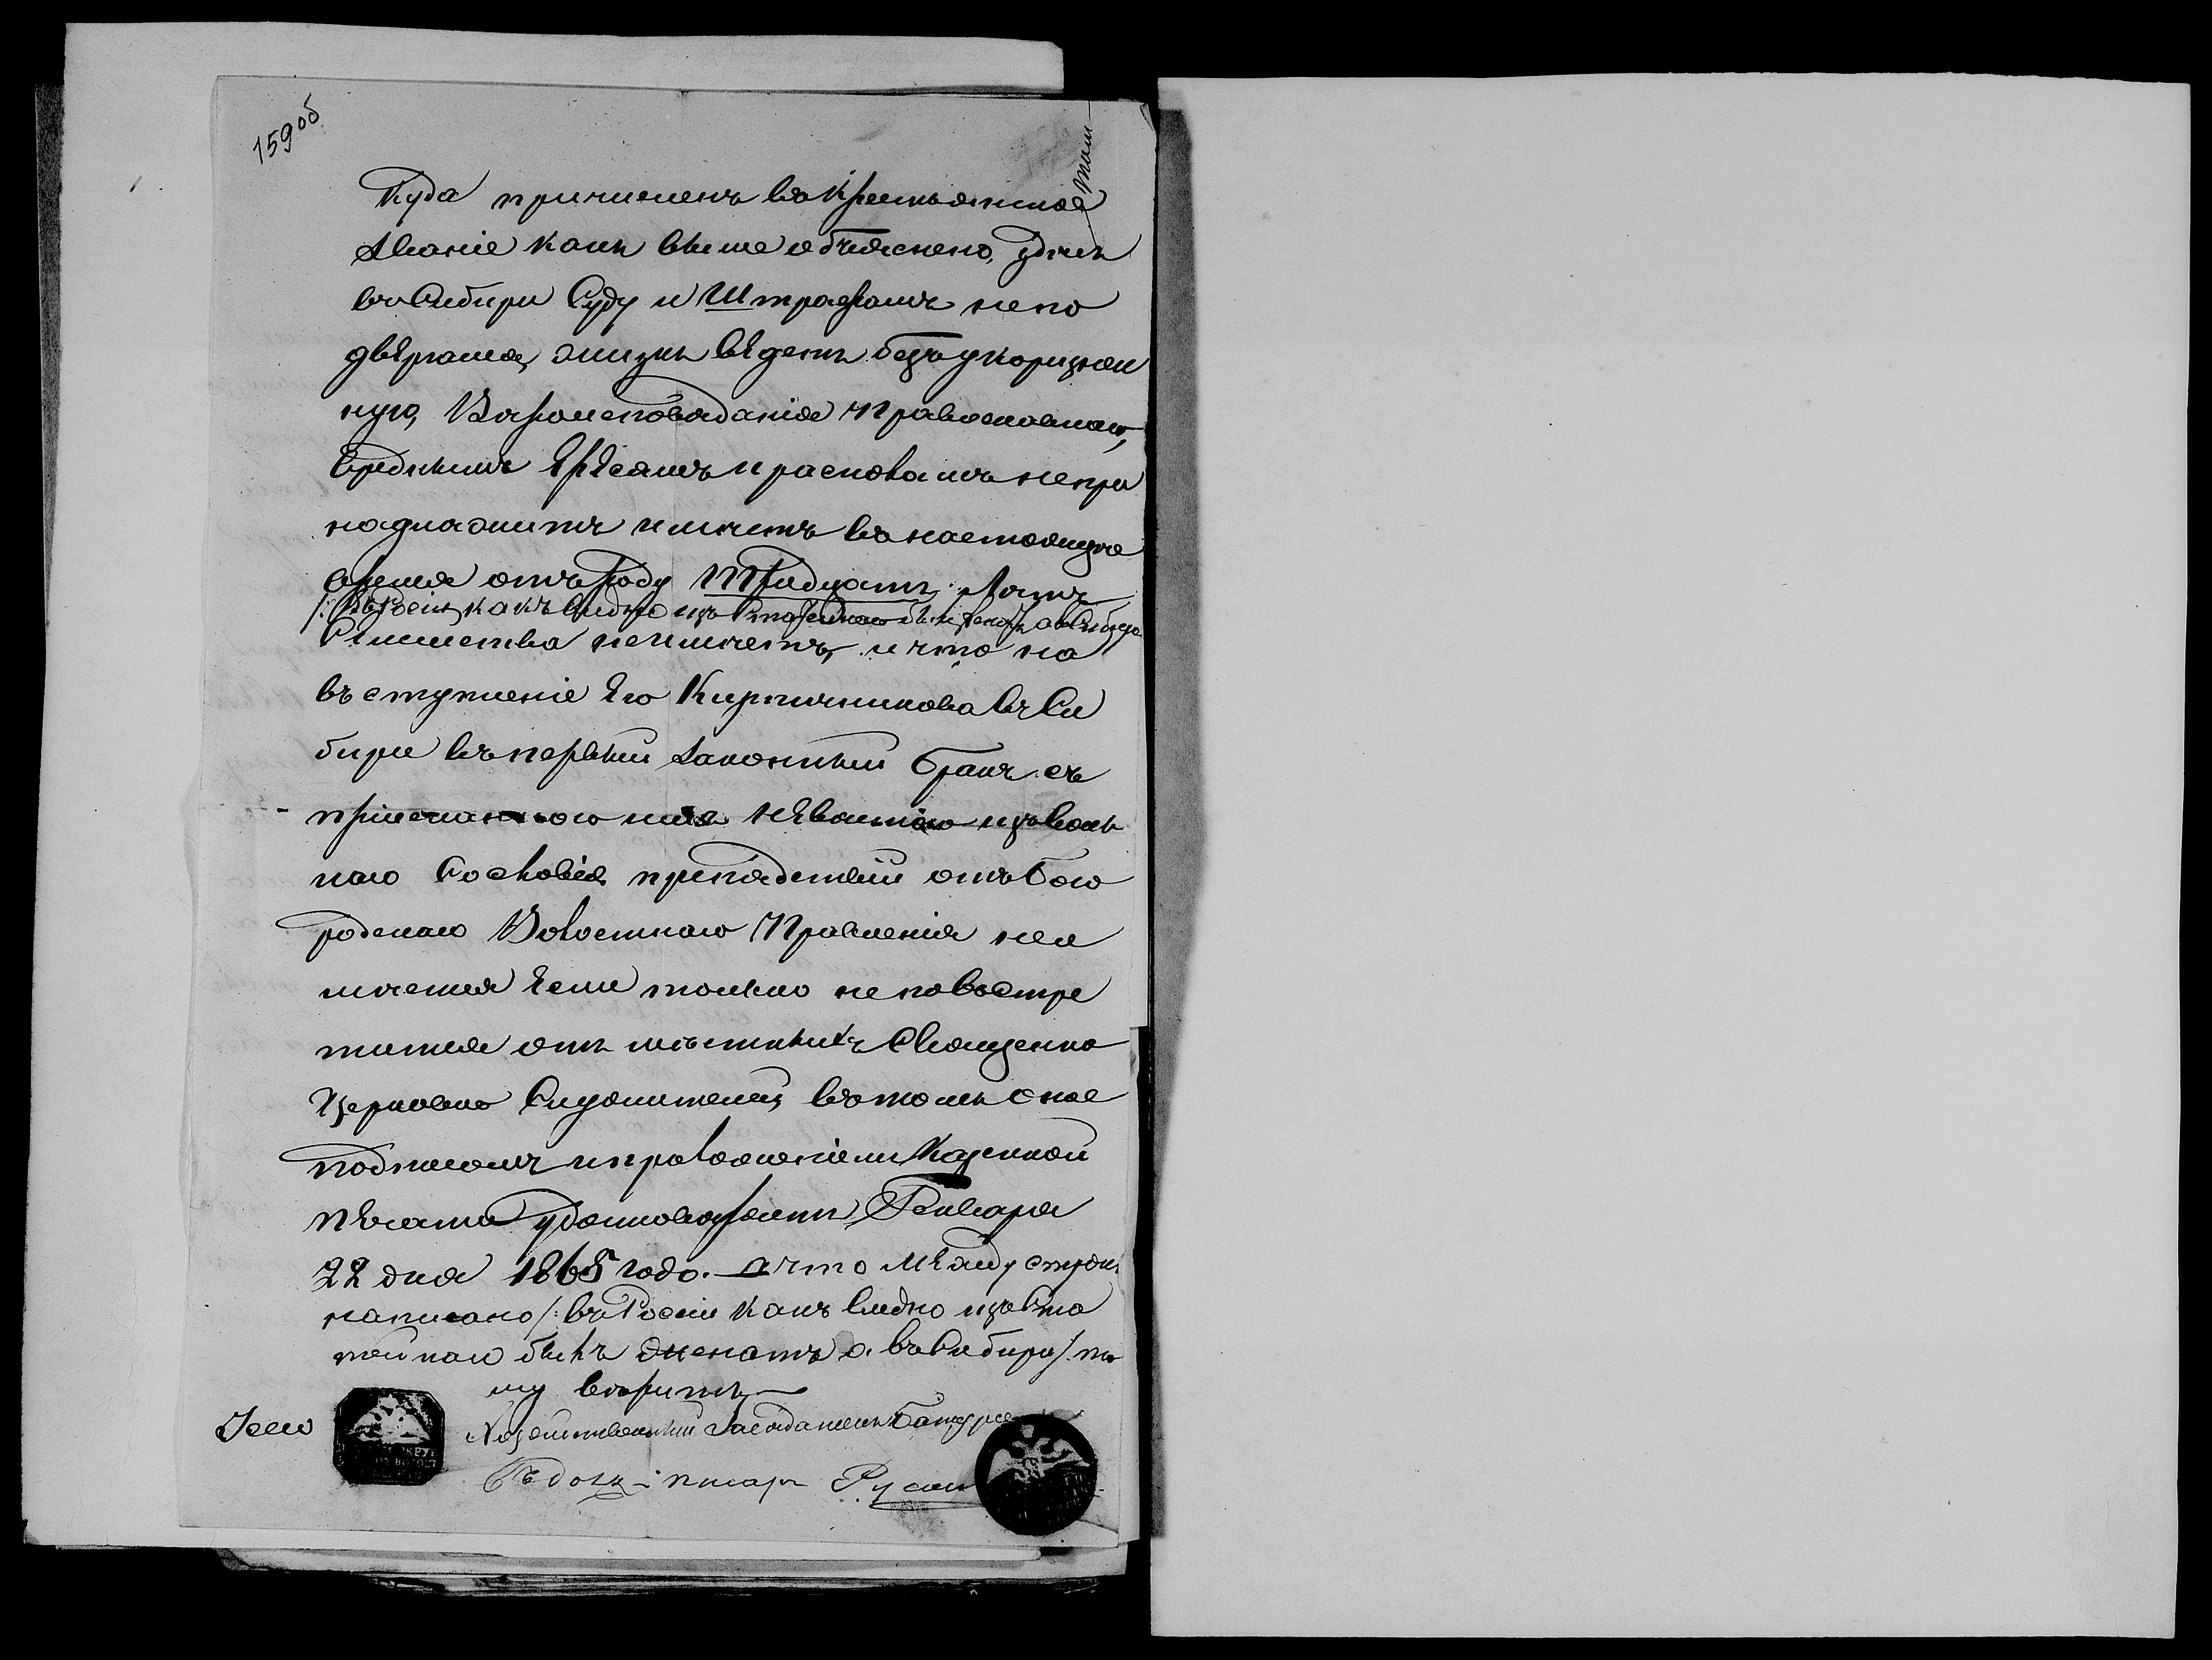 159 об
Куда причисленъ въ крестьянское
званіе какъ выше объяснено, здѣсь
въ Сибири Суду и Штрафамъ непо
двѣргался, жизнь вѣдетъ безъукоризнен
ную, Вѣроисповѣданія Православнаго,
вреднымъ Ерѣсямъ и расколамъ непри
надлѣжитъ имѣетъ въ настоящее
время отъ роду Тридцать лѣтъ
/: въ Росіи какъ видно изъ былъ женатъ а въ Сибири
Сѣмейства неимѣетъ, и что на
въступленіе Его Кирпичникова въ Си
бири въ первый законный бракъ съ
пріисканною имъ нѣвѣстою изъ воль
наго Сословія, препядствій отъ Бого
родскаго Волостнаго Правленія неи
мѣется Если только невостре
тится отъ мѣстныхъ Священно
Церковно Служителей, въ томъ оное
подписомъ и приложеніемъ Казенной
пѣчати удостовѣряетъ, Генваря
22 дня 1865 года. А что мѣжду строкъ
написано /: въ Росіи какъ видно изъ Ста
тейнаго былъ женатъ а въ Сибири /: то
му вѣрить
Хозяйственный Засѣдатель
Сѣло
писарь